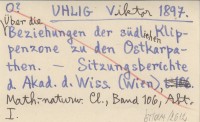 O?
UHLIG Viktor 1897.
Über die
Beziehungen der südlichen Klip-
penzone zu den Ostkarpa-
then. — Sitzungsberichte
d. Akad. d. Wiss. (Wien),
Math.-naturw. Cl., Band 106, Abt.
I.